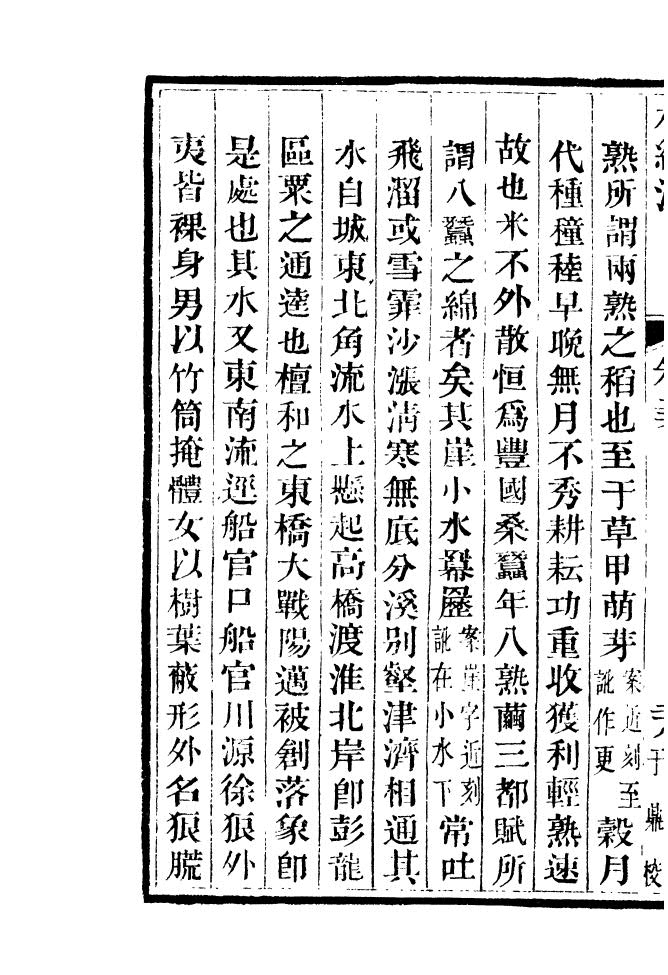 熟所謂兩熟之稻也至于草甲萌芽案近刻訛作更至穀月
代種穜稑早晚無月不秀耕耘功重收獲利輕熟速
故也米不外散恒爲豐國桑蠶年八熟繭三都賦所
謂八蠶之綿者矣其崖小水冪䍥案崖字近刻訛在小水下常吐
飛溜或雪霏沙漲清寒無底分溪別壑津濟相通其
水自城東北角流水上懸起高橋渡淮北岸卽彭龍
區粟之通逵也檀和之東橋大戰陽邁被創落象卽
是處也其水又東南流逕船官口船官川源徐狼外
夷皆裸身男以竹筒掩體女以樹葉蔽形外名狼䐠